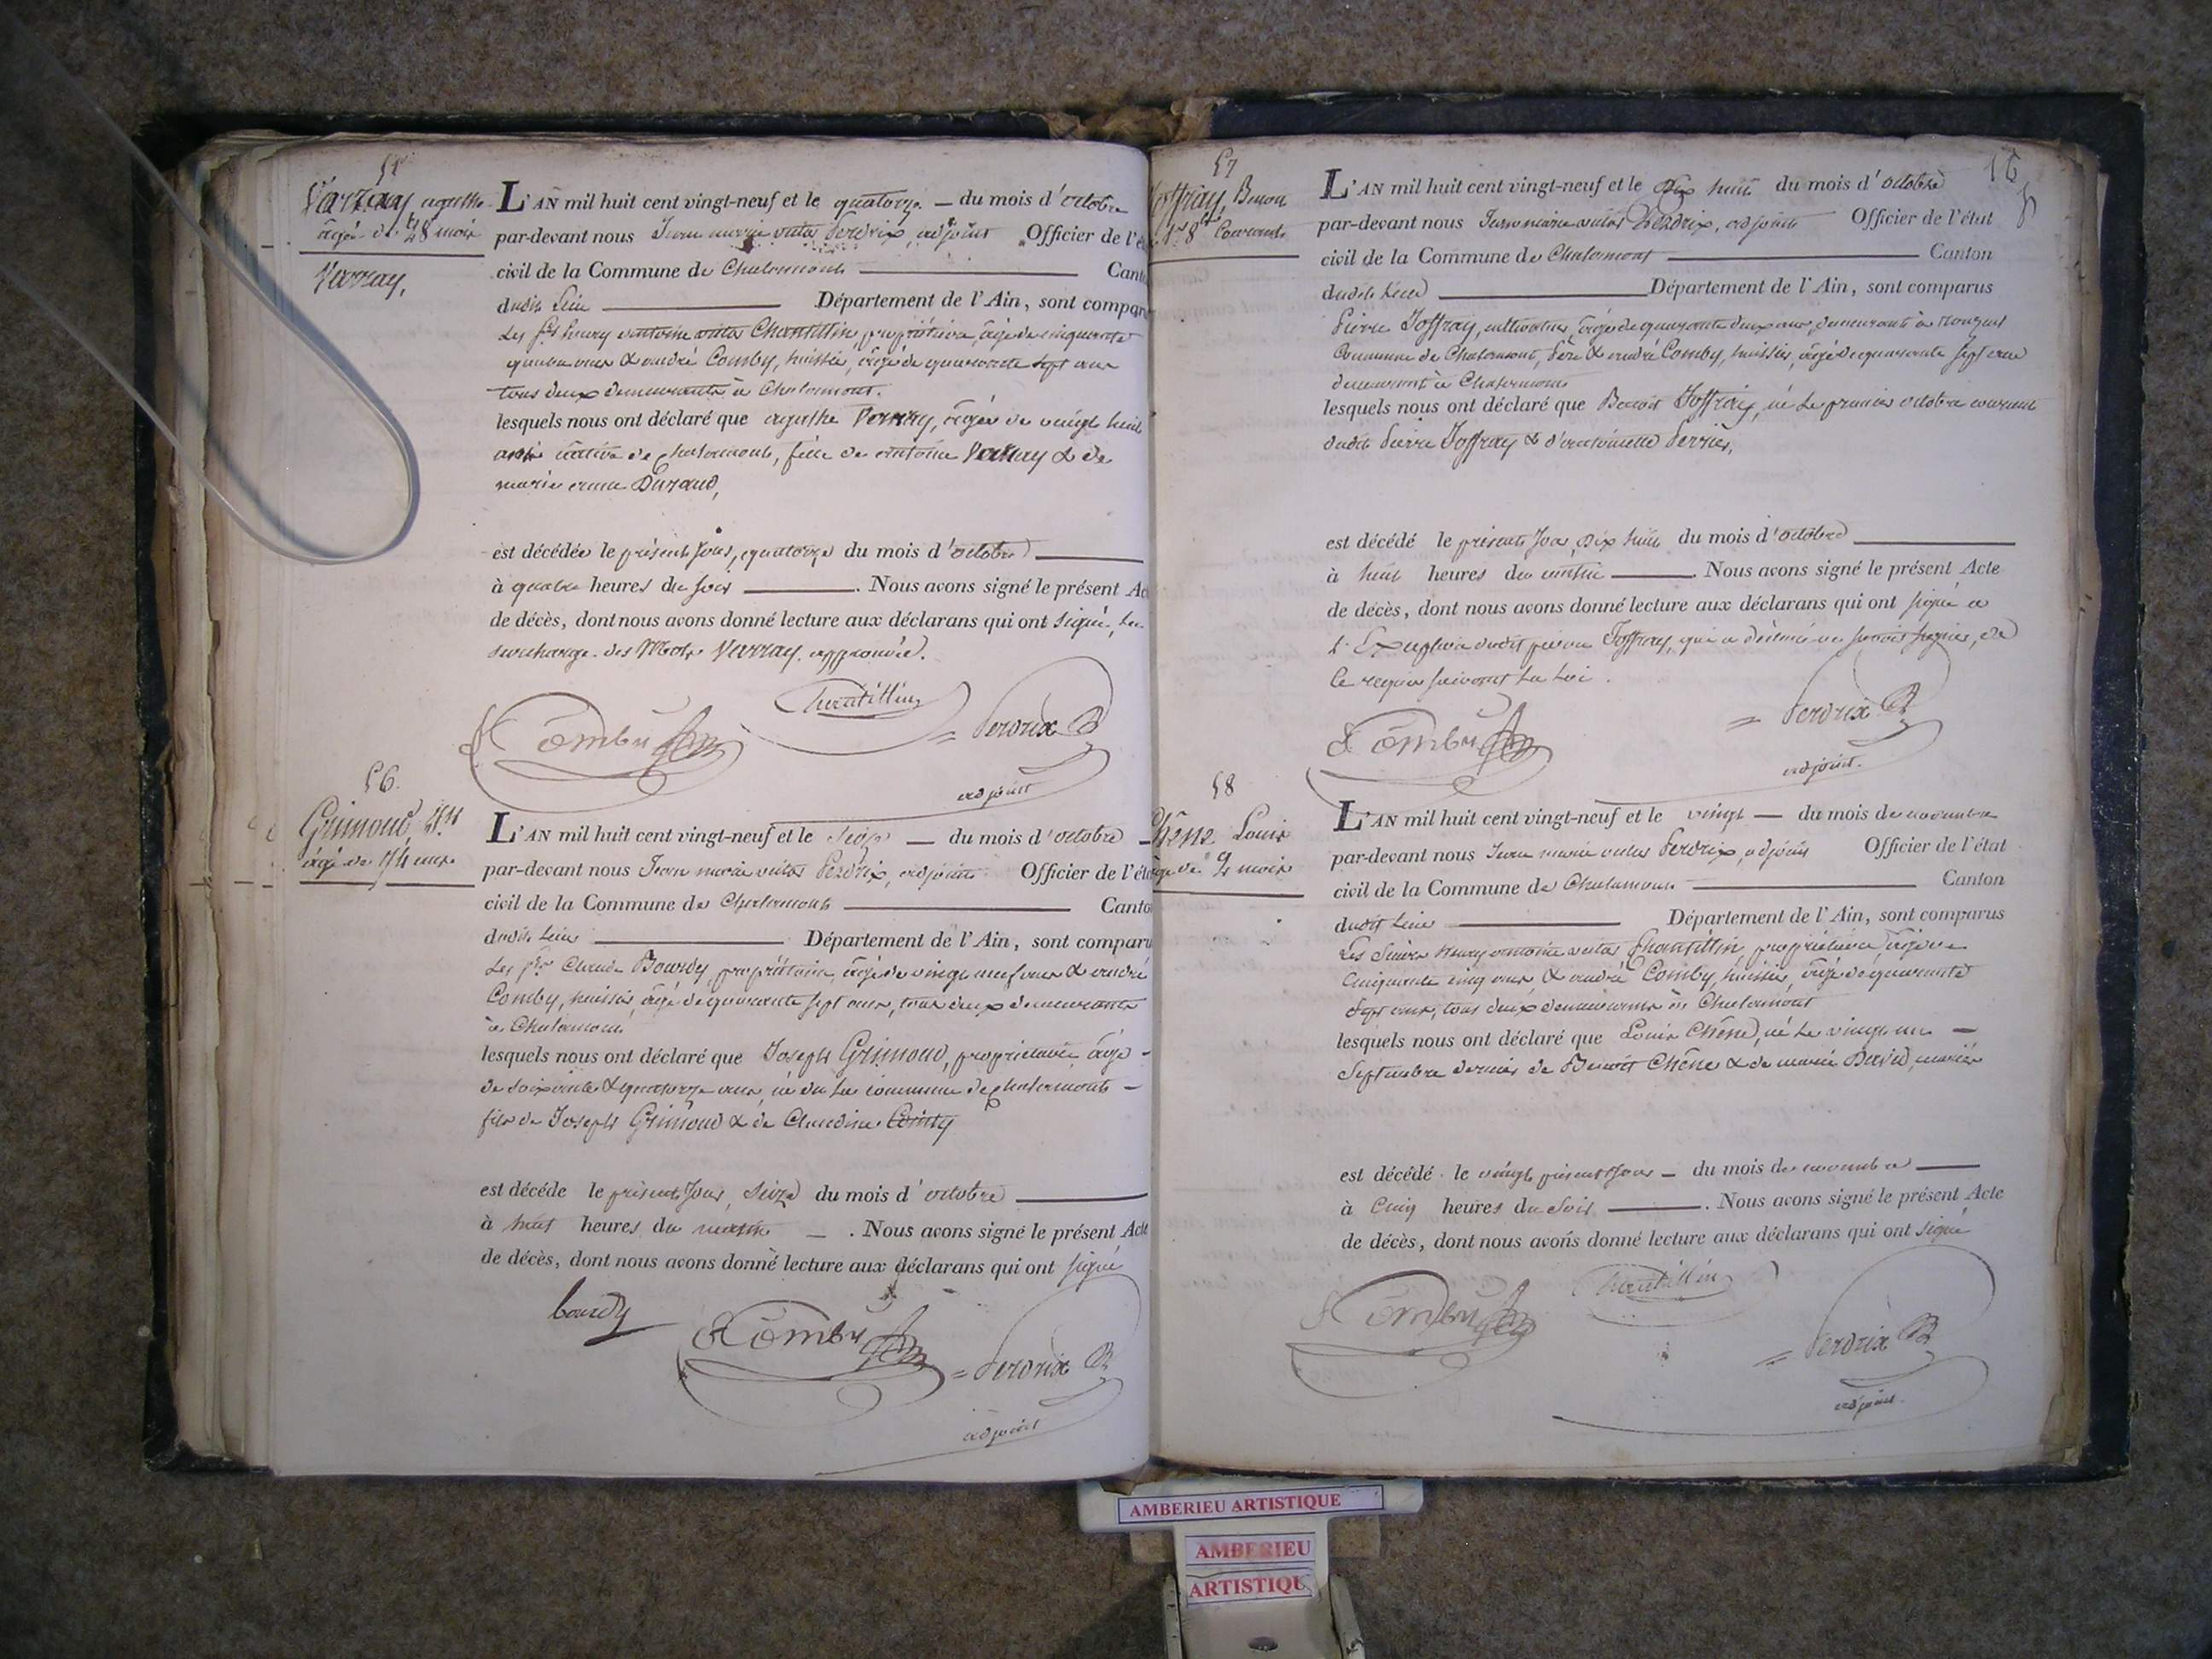 55
Varray agathe
âgée de 28 mois
Varray,
L'AN mil huit cent vingt-neuf et le quatorze — du mois d'octobre
par-devant nous Jean marie victor Perdrix, adjoint Officier de l'é
civil de la Commune de Chalamont Cant
dudit Lieu Département de l'Ain, sont compar
Les Srs henry antoine victor Chantillin, propriétaire, âgé de cinquante
quatre ans & andré Comby, huissier, âgé de quarante sept ans
tous deux demeurants à Chalamont.
lesquels nous ont déclaré que agathe Varray, âgée de vingt huit
native de chalamont, fille de antoine Varray & de
marie anne Durand,
est décédée le présent jour, quatorze du mois d'octobre
à quatre heures du soir . Nous avons signé le présent Ac
de décès, dont nous avons donné lecture aux déclarans qui ont signé, La
surcharge des Mots Varray approuvée.
Chantillin
Comby
Perdrix
adjoint
56.
Grimoud Jh
âgé de 74 ans
L'AN mil huit cent vingt-neuf et le seize — du mois d'octobre —
par-devant nous Jean marie victor Perdrix, adjoint Officier de l'éta
civil de la Commune de Chalamont Canto
dudit Lieu Département de l'Ain, sont comparu
Les Srs Claude Bourdy, propriétaire, âgé de vingt neuf ans & andré
Comby, huissier, âgé de quarante sept ans, tous deux demeurants
à Chalamont
lesquels nous ont déclaré que Joseph Grimoud, propriétaire âgé -
de soixante & quatorze ans, né en la commune de chalamont -
fils de Joseph Grimoud & de Claudine
est décédé le présent jour, seize du mois d'octobre
à huit heures du matin — . Nous avons signé le présent Acte
de décès, dont nous avons donné lecture aux déclarans qui ont signé
bourdy
Comby
Perdrix
adjoint
16
57
Joffray, Benoit
1er 8bre Courant
L'AN mil huit cent vingt-neuf et le dix huit du mois d'octobre
par-devant nous Jean marie victor Perdrix, adjoint Officier de l'état
civil de la Commune de Chalamont Canton
dudit Lieu Département de l'Ain, sont comparus
Pierre Joffray, cultivateur, âgé de quarante deux ans, demeurant à
Commune de Chalamont, Père & andré Comby, huissier, âgé de quarante sept ans
demeurant à Chalamont
lesquels nous ont déclaré que Benoit Joffray, né Le premier octobre courant
dudit Pierre Joffray & d'antoinette Perrier,
est décédé le présent jour, dix huit du mois d'octobre
à huit heures du matin . Nous avons signé le présent Acte
de décès, dont nous avons donné lecture aux déclarans qui ont signé à
L'Exception dudit pierre Joffray, qui a déclaré ne savoir signer, de
Ce requis suivant La Loi.
Comby
Perdrix
adjoint.
58
Chêne Louis
âgé de 2 mois
L'AN mil huit cent vingt-neuf et le vingt — du mois de novembre
par-devant nous Jean marie victor Perdrix, adjoint Officier de l'état
civil de la Commune de Chalamont Canton
dudit Lieu Département de l'Ain, sont comparus
Les Sieurs henry antoine victor Chantillin, propriétaire, âgé de
Cinquante cinq ans, & andré Comby, huissier, âgé de quarante
sept ans, tous deux demeurants à Chalamont
lesquels nous ont déclaré que Louis Chêne, né Le vingt un —
septembre dernier de Benoit Chêne & de marie David, mariés
est décédé le vingt présent jour — du mois de novembre
à Cinq heures du soir . Nous avons signé le présent Acte
de décès, dont nous avons donné lecture aux déclarans qui ont signé
Chantillin
Comby
Perdrix
adjoint.
AMBERIEU ARTISTIQUE
AMBERIEU
ARTISTIQU